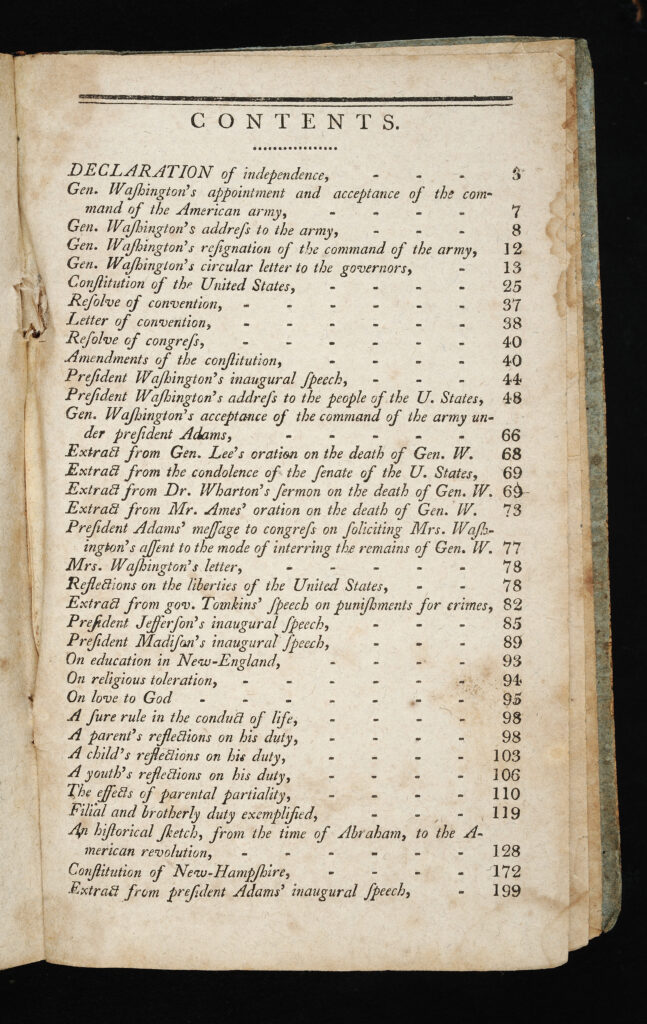 CONTENTS.
DECLARATION of independence, - - - 3
Gen. Waſhington's appointment and acceptance of the com-
mand of the American army, - - - - 7
Gen. Waſhington's addreſs to the army, - - - 8
Gen. Waſhington's reſignation of the command of the army, 12
Gen. Waſhington's circular letter to the governors, - 13
Conſtitution of the United States, - - - - 25
Reſolve of convention, - - - - - - 37
Letter of convention, - - - - - - 38
Reſolve of congreſs, - - - - - - 40
Amendments of the conſtitution, - - - - 40
Preſident Waſhington's inaugural ſpeech, - - - 44
Preſident Waſhington's addreſs to the people of the U. States, 48
Gen. Waſhington's acceptance of the command of the army un-
der preſident Adams, - - - - - 66
Extract from Gen. Lee's oration on the death of Gen. W. 68
Extract from the condolence of the ſenate of the U. States, 69
Extract from Dr. Wharton's ſermon on the death of Gen. W. 69
Extract from Mr. Ames' oration on the death of Gen. W. 73
Preſident Adams' meſſage to congreſs on ſoliciting Mrs. Waſh-
ington's aſſent to the mode of interring the remains of Gen. W. 77
Mrs. Waſhington's letter, - - - - - 78
Reflections on the liberties of the United States, - - 78
Extract from gov. Tomkins' ſpeech on puniſhments for crimes, 82
Preſident Jefferſon's inaugural ſpeech, - - - 85
Preſident Madiſon's inaugural ſpeech, - - - 89
On education in New-England, - - - - 93
On religious toleration, - - - - - - 94
On love to God - - - - - - - 95
A ſure rule in the conduct of life, - - - - 98
A parent's reflections on his duty, - - - - 98
A child's reflections on his duty, - - - - 103
A youth's reflections on his duty, - - - - 106
The effects of parental partiality, - - - - 110
Filial and brotherly duty exemplified, - - - 119
An hiſtorical ſketch, from the time of Abraham, to the A-
merican revolution, - - - - - - 128
Conſtitution of New-Hampſhire, - - - - 172
Extract from preſident Adams' inaugural ſpeech, - 199